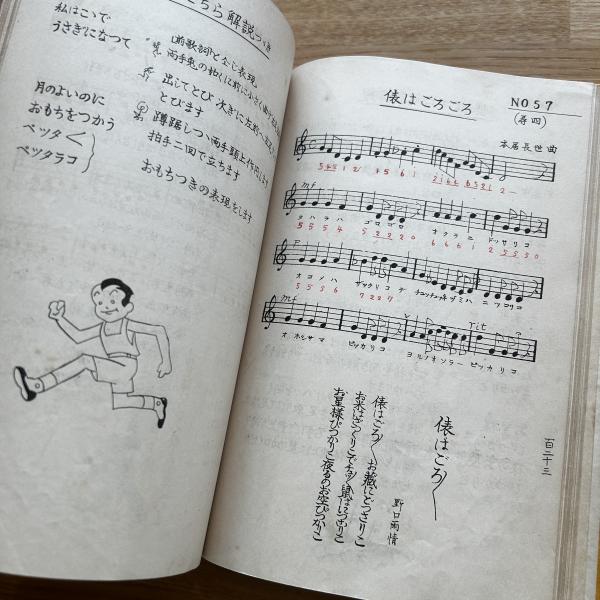 こちら解説つき
私はこで
うさぎになつて
前歌詞と同じ表現
両手兎の
出してとび 次ぎに左前へ
とびます
蹲踞しつゝ両手頭上作ります
拍手二回で立ちます
月のよいのに
おもちをつかう
ペッタ
ペッタラコ
おもちつきの表現をします
俵はごろごろ
NO57
(尋四)
本居長世曲
5 5 5 4 5 3 2 2 0 6 6 6 1 2 5 5 5 0
mf
タハラハ ゴロゴロ オクラニ ドッサリコ
P
オコメハ ザックリコデ チュッチュネズミハ ニッコリコ
5 5 5 6 7 2 2 7
mf
rit
オホシサマ ピッカリコ ヨルノオソラー ピッカリコ
俵はごろ〱
野口雨情
俵はごろ〱 お藏にどつさりこ
お米はざつくりこでチュウ〱鼠はにつこりこ
お星様ぴつかりこ夜るのお空ぴつかりこ
百二十三